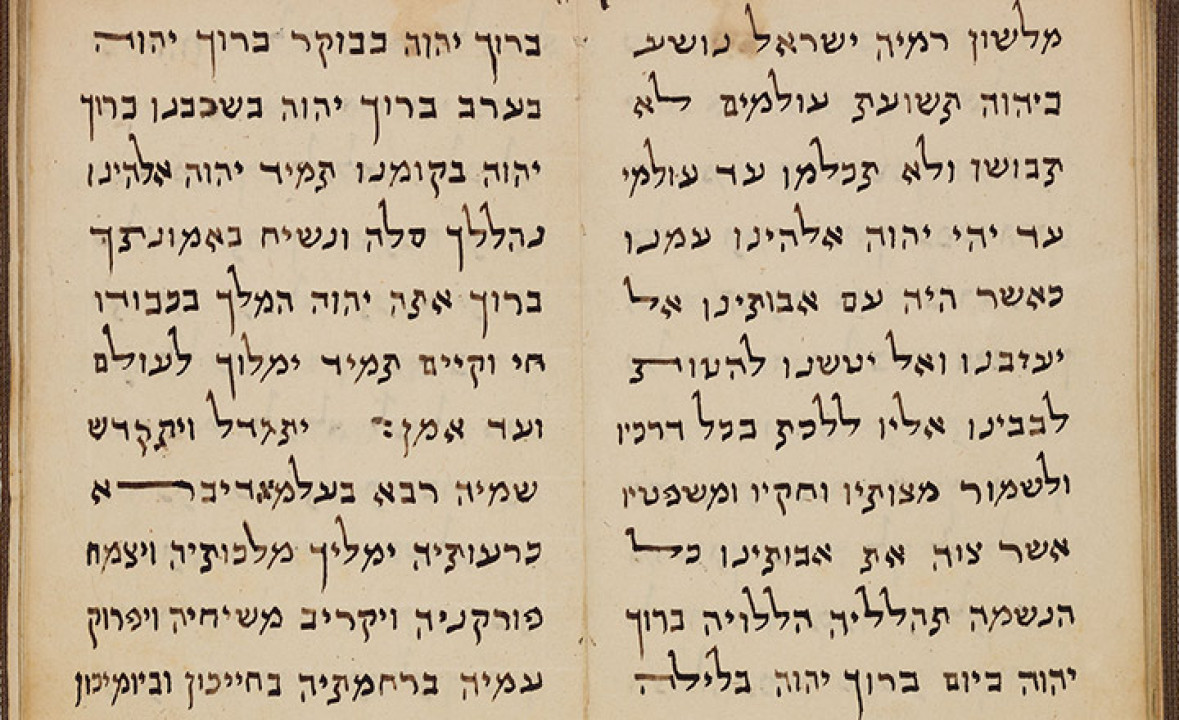 מלשון רמיה ישראל נושע
ביהוה תשועת עולמים לא
תבושו ולא תכלמו עד עולמי
עד יהי יהוה אלהינו עמנו
כאשר היה עם אבותינו אל
יעזבנו ואל יטשנו להטות
לבבינו אליו ללכת בכל דרכיו
ולשמור מצותיו וחקיו ומשפטיו
אשר צוה את אבותינו כל
הנשמה תהלליה הללויה ברוך
יהוה ביום ברוך יהוה בלילה
ברוך יהוה בבוקר ברוך יהוה
בערב ברוך יהוה בשכבנו ברוך
יהוה בקומנו תמיד יהוה אלהינו
נהללך סלה ונשיח באמונתך
ברוך אתה יהוה המלך בכבודו
חי וקיים תמיד ימלוך לעולם
ועד אמן: יתגדל ויתקדש
שמיה רבא בעלמא דיברא
כרעותיה ימליך מלכותיה ויצמח
פורקניה ויקריב משיחיה ויפרוק
עמיה ברחמתיה בחייכון וביומיכון